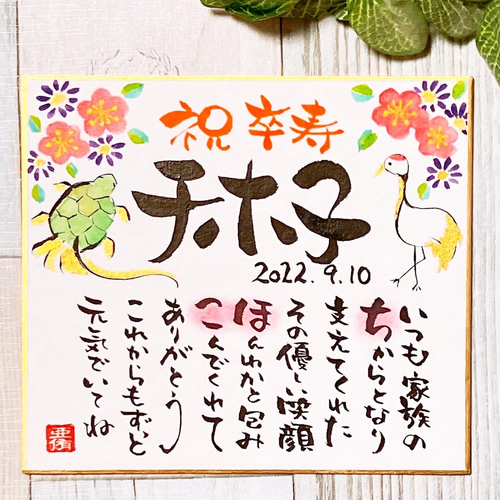 祝卒寿
チホ子
2022.9.10
いつも家族の
ちからとなり
支えてくれた
その優しい笑顔
ほんわかと包み
こんでくれて
ありがとう
これからもずっと
元気でいてね